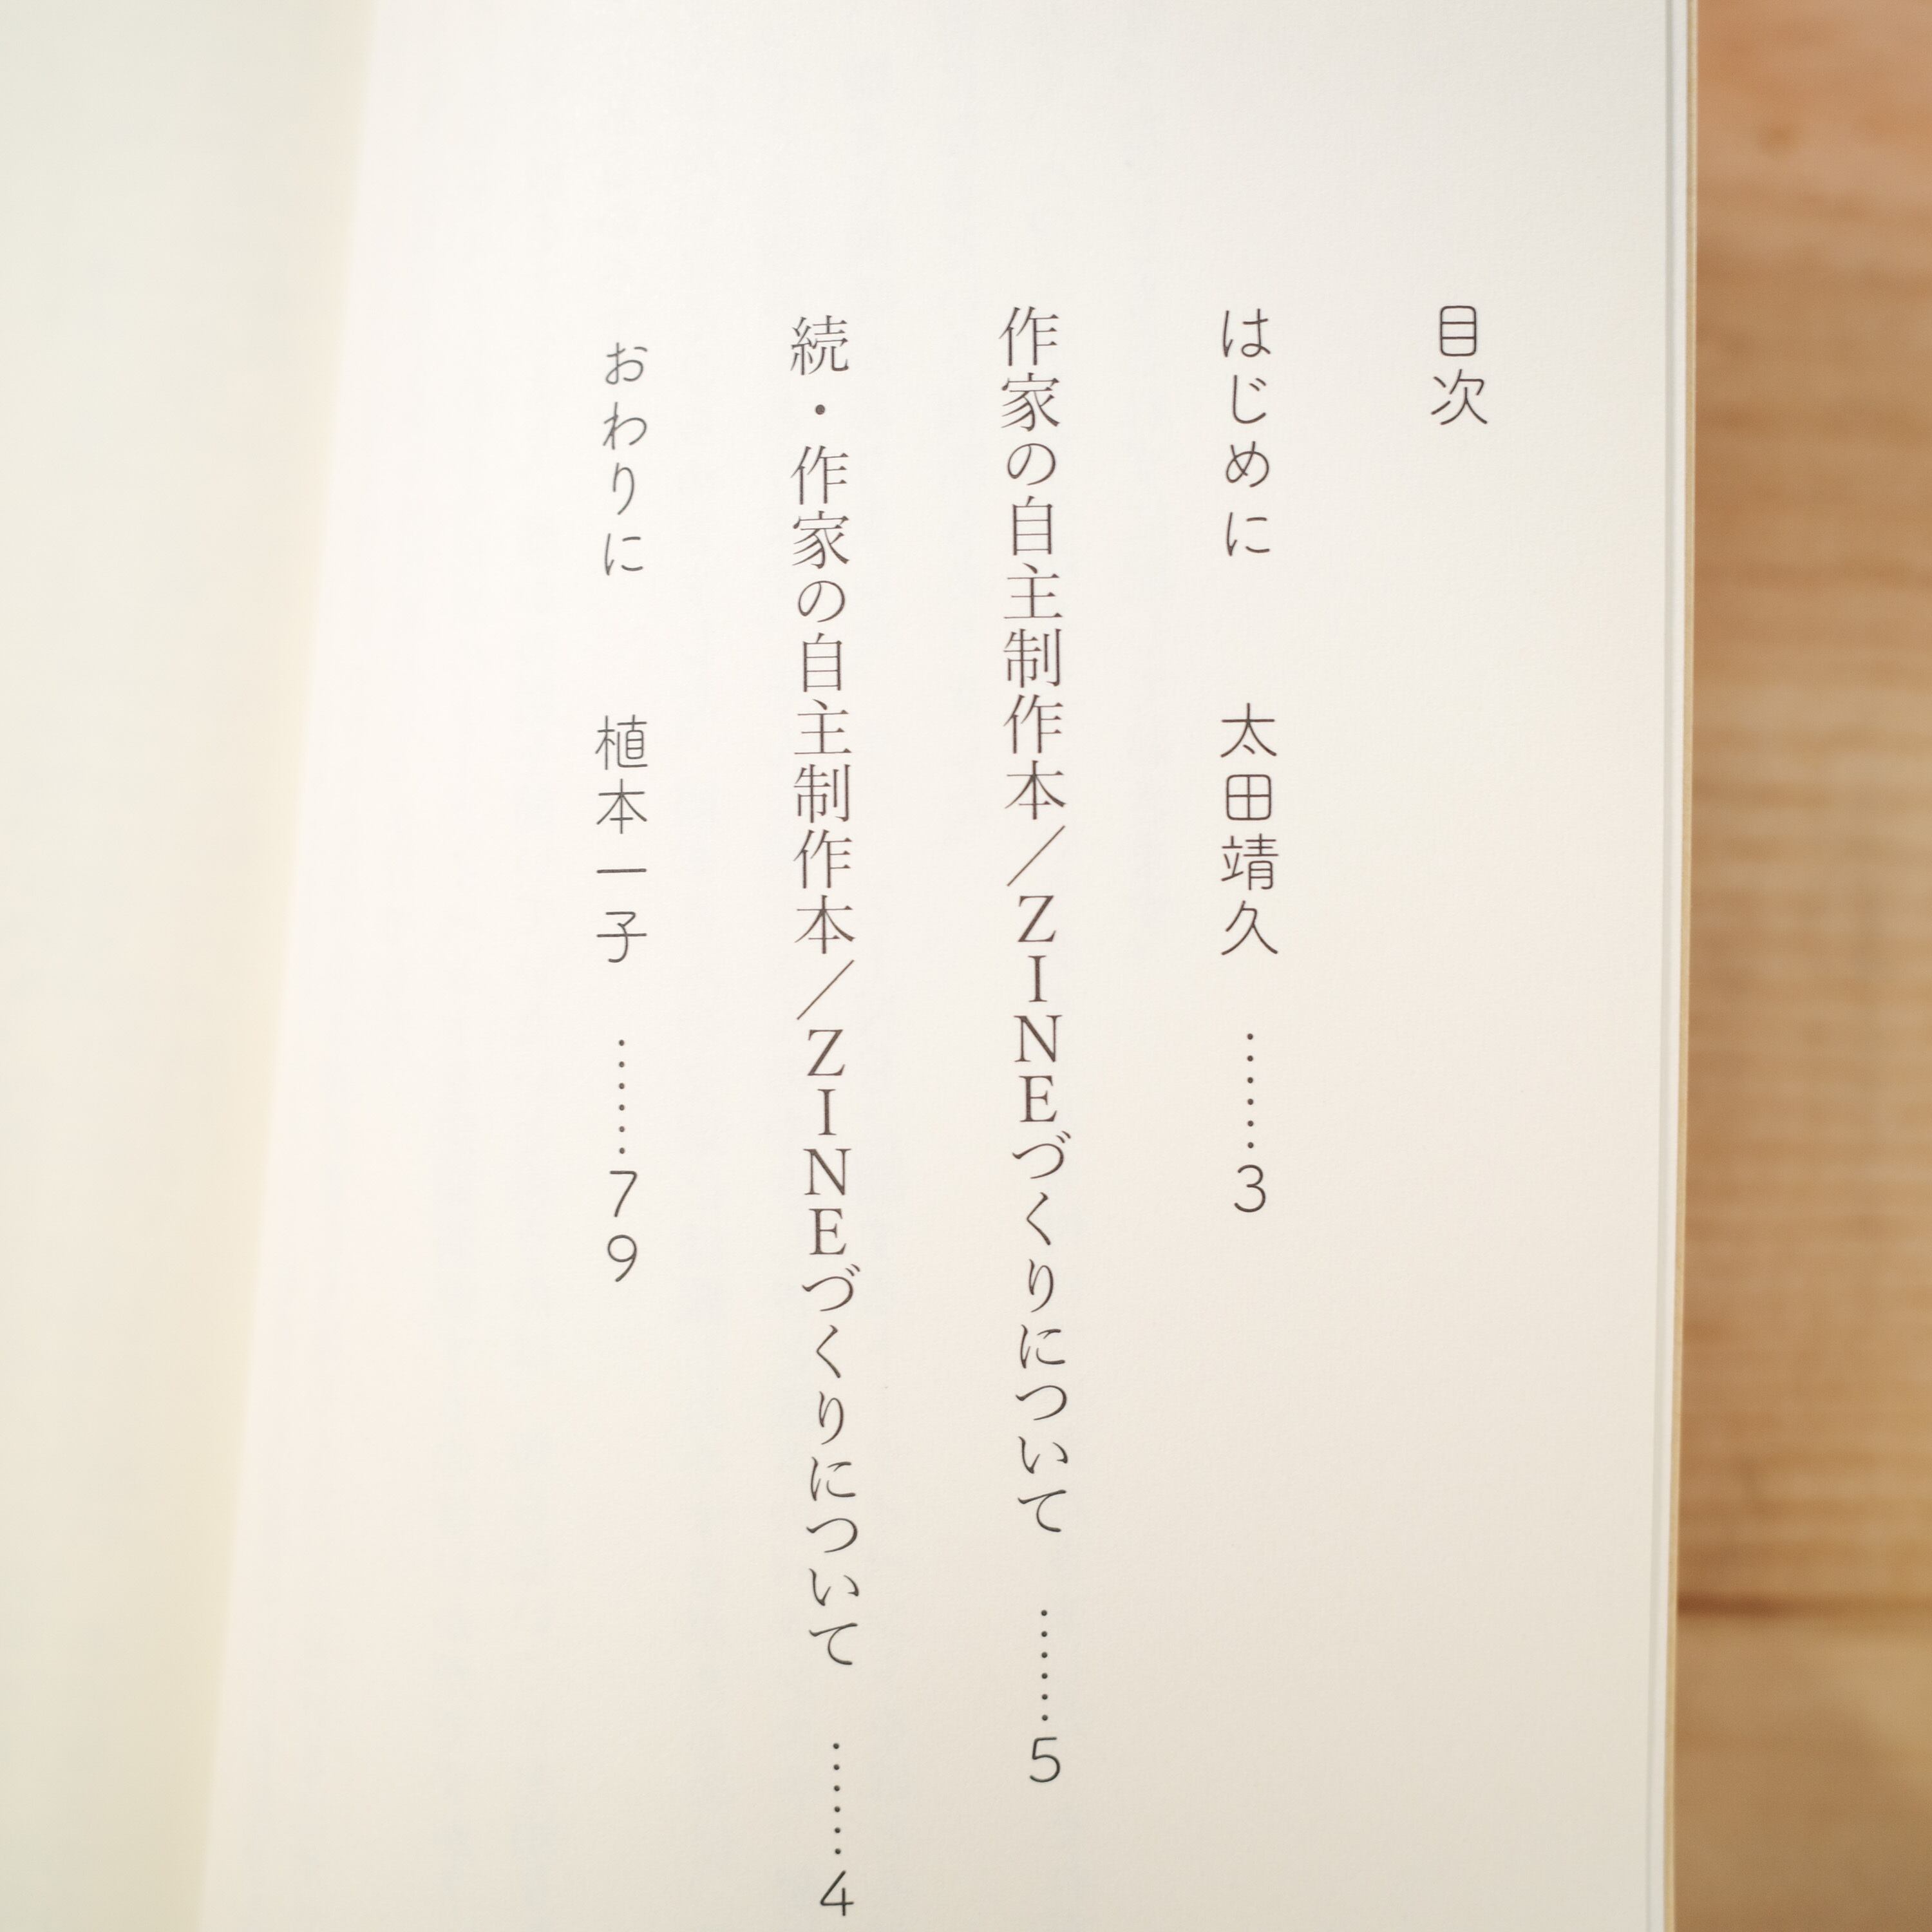 目次
はじめに　太田靖久 ……3
作家の自主制作本／ZINEづくりについて ……5
続・作家の自主制作本／ZINEづくりについて ……4
おわりに　植本一子 ……79